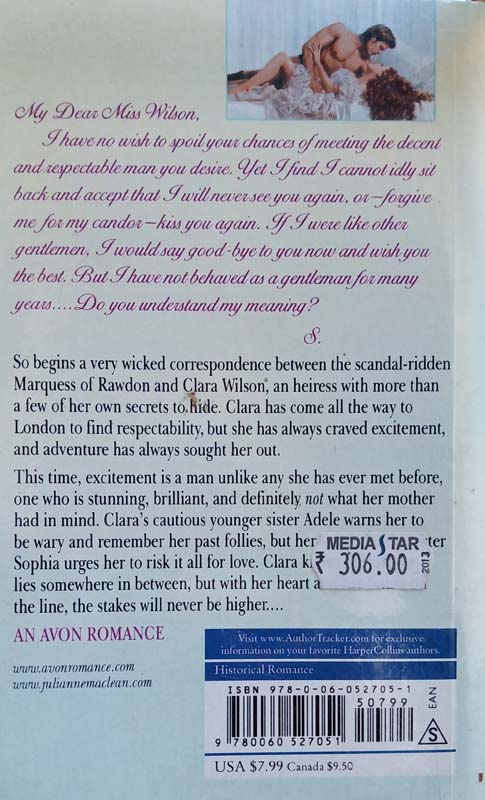 My Dear Miss Wilson,
I have no wish to spoil your chances of meeting the decent
and respectable man you desire. Yet I find I cannot idly sit
back and accept that I will never see you again, or—forgive
me for my candor—kiss you again. If I were like other
gentlemen, I would say good-bye to you now and wish you
the best. But I have not behaved as a gentleman for many
years....Do you understand my meaning?
S.
So begins a very wicked correspondence between the scandal-ridden
Marquess of Rawdon and Clara Wilson, an heiress with more than
a few of her own secrets to hide. Clara has come all the way to
London to find respectability, but she has always craved excitement,
and adventure has always sought her out.
This time, excitement is a man unlike any she has ever met before,
one who is stunning, brilliant, and definitely not what her mother
had in mind. Clara's cautious younger sister Adele warns her to
be wary and remember her past follies, but her
Sophia urges her to risk it all for love. Clara
lies somewhere in between, but with her heart
the line, the stakes will never be higher....
MEDIA STAR
₹ 306.00
2013
AN AVON ROMANCE
www.avonromance.com
www.juliannemaclean.com
Visit www.AuthorTracker.com for exclusive
information on your favorite HarperCollins authors.
Historical Romance
ISBN 978-0-06-052705-1
50799
EAN
S
9 780060 527051
USA $7.99 Canada $9.50